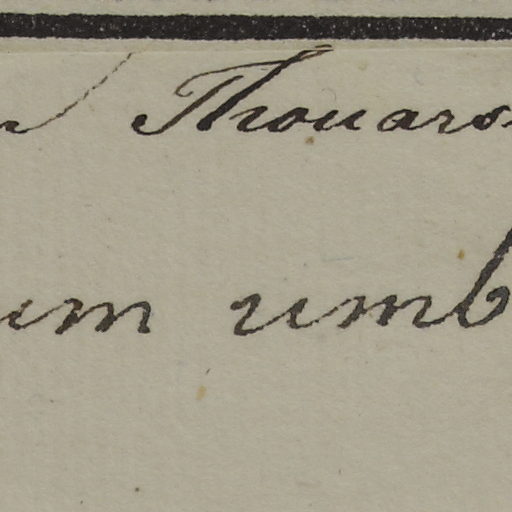 Thouars
um umb